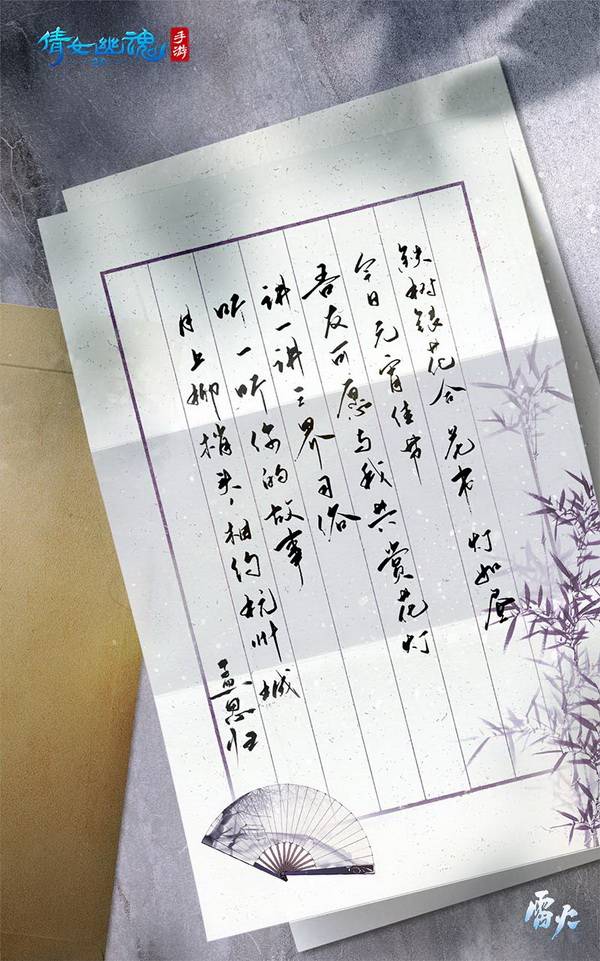 倩女幽魂
手游
铁树银花合 花市灯如昼
今日元宵佳节
吾友可愿与我共赏花灯
讲一讲三界习俗
听一听你的故事
月上柳梢头，相约杭州城
孟思归
雷火